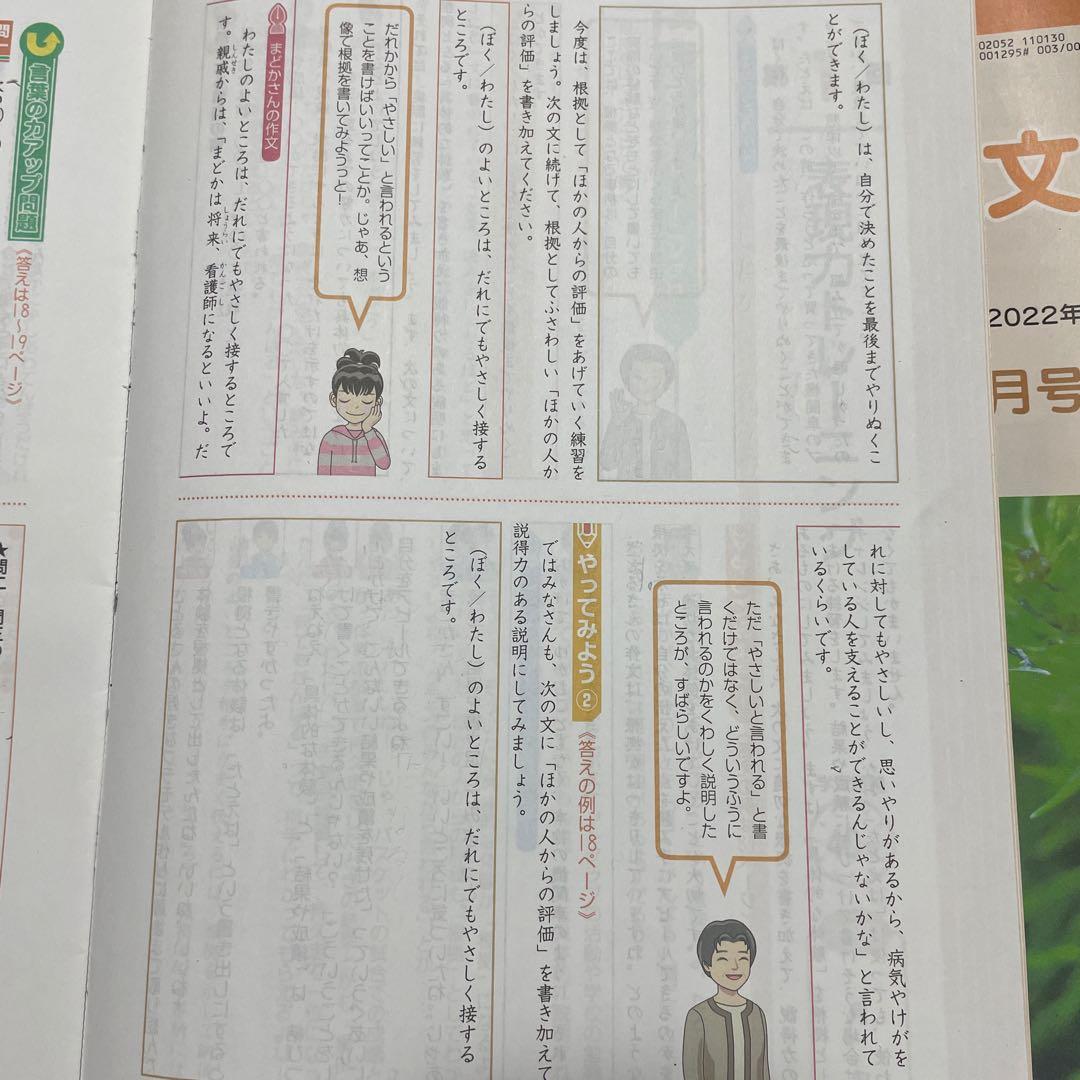 (ぼく／わたし)は、自分で決めたことを最後までやりぬくこ
とができます。
今度は、根拠として「ほかの人からの評価」をあげていく練習を
しましょう。次の文に続けて、根拠としてふさわしい「ほかの人か
らの評価」を書き加えてください。
(ぼく／わたし)のよいところは、だれにでもやさしく接する
ところです。
だれかから「やさしい」と言われるという
ことを書けばいいってことか。じゃあ、想
像で根拠を書いてみようっと！
まどかさんの作文
わたしのよいところは、だれにでもやさしく接するところで
す。親戚からは、「まどかは将来、看護師になるといいよ。だ
しんせき
しょうらい
かんごし
れに対してもやさしいし、思いやりがあるから、病気やけがを
している人を支えることができるんじゃないかな」と言われて
いるくらいです。
ただ「やさしいと言われる」と書
くだけではなく、どういうふうに
言われるのかをくわしく説明した
ところが、すばらしいですよ。
やってみよう②
《答えの例は18ページ》
ではみなさんも、次の文に「ほかの人からの評価」を書き加えて
説得力のある説明にしてみましょう。
(ぼく／わたし)のよいところは、だれにでもやさしく接する
ところです。
言葉の力アップ問題
《答えは18～19ページ》
02052 110130
001295# 003/00
文
2022年
月号